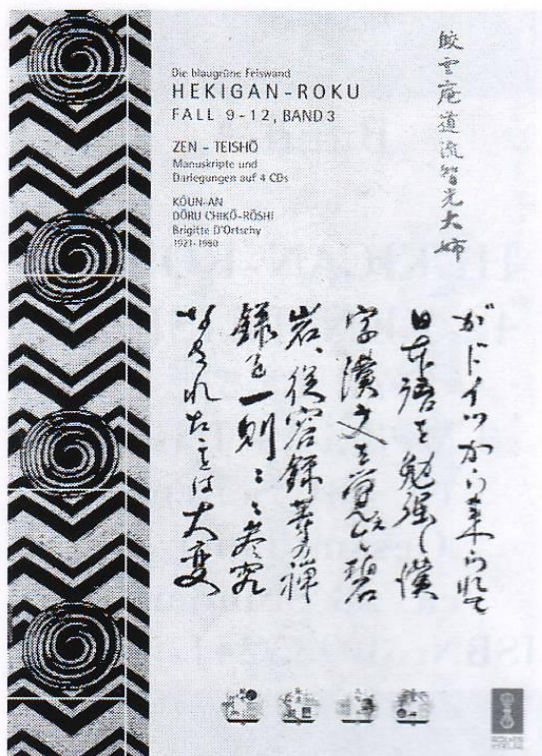 Die blaugrüne Felswand
HEKIGAN-ROKU
FALL 9-12, BAND 3
ZEN - TEISHŌ
Manuskripte und
Darlegungen auf 4 CDs
KŌUN-AN
DŌRU CHIKŌ-RŌSHI
Brigitte D'Ortschy
1921-1980
雲庵道流智光大姉
がドイツから来られて
日本語を勉強し漢
字漢文を覚え碧
岩、従容録等の禅
録を一則〻〻参究
なされたことは大変